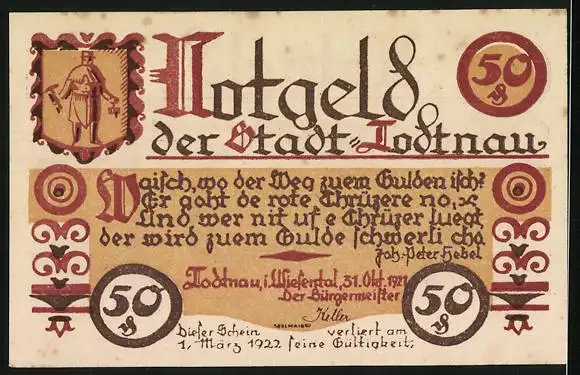 Notgeld
50 ₰
der Stadt Todtnau
Waisch, wo der Weg zuem Gulden isch?
Er goht de rote Chrüzere no, ꝛc
Und wer nit uf e Chrüzer luegt
der wird zuem Gulde schwerli cho
Joh. Peter Hebel
Todtnau, i. Wiesental, 31. Okt. 1921
Der Bürgermeister
Keller
50 ₰
50 ₰
Dieser Schein verliert am
1. März 1922 seine Gültigkeit.